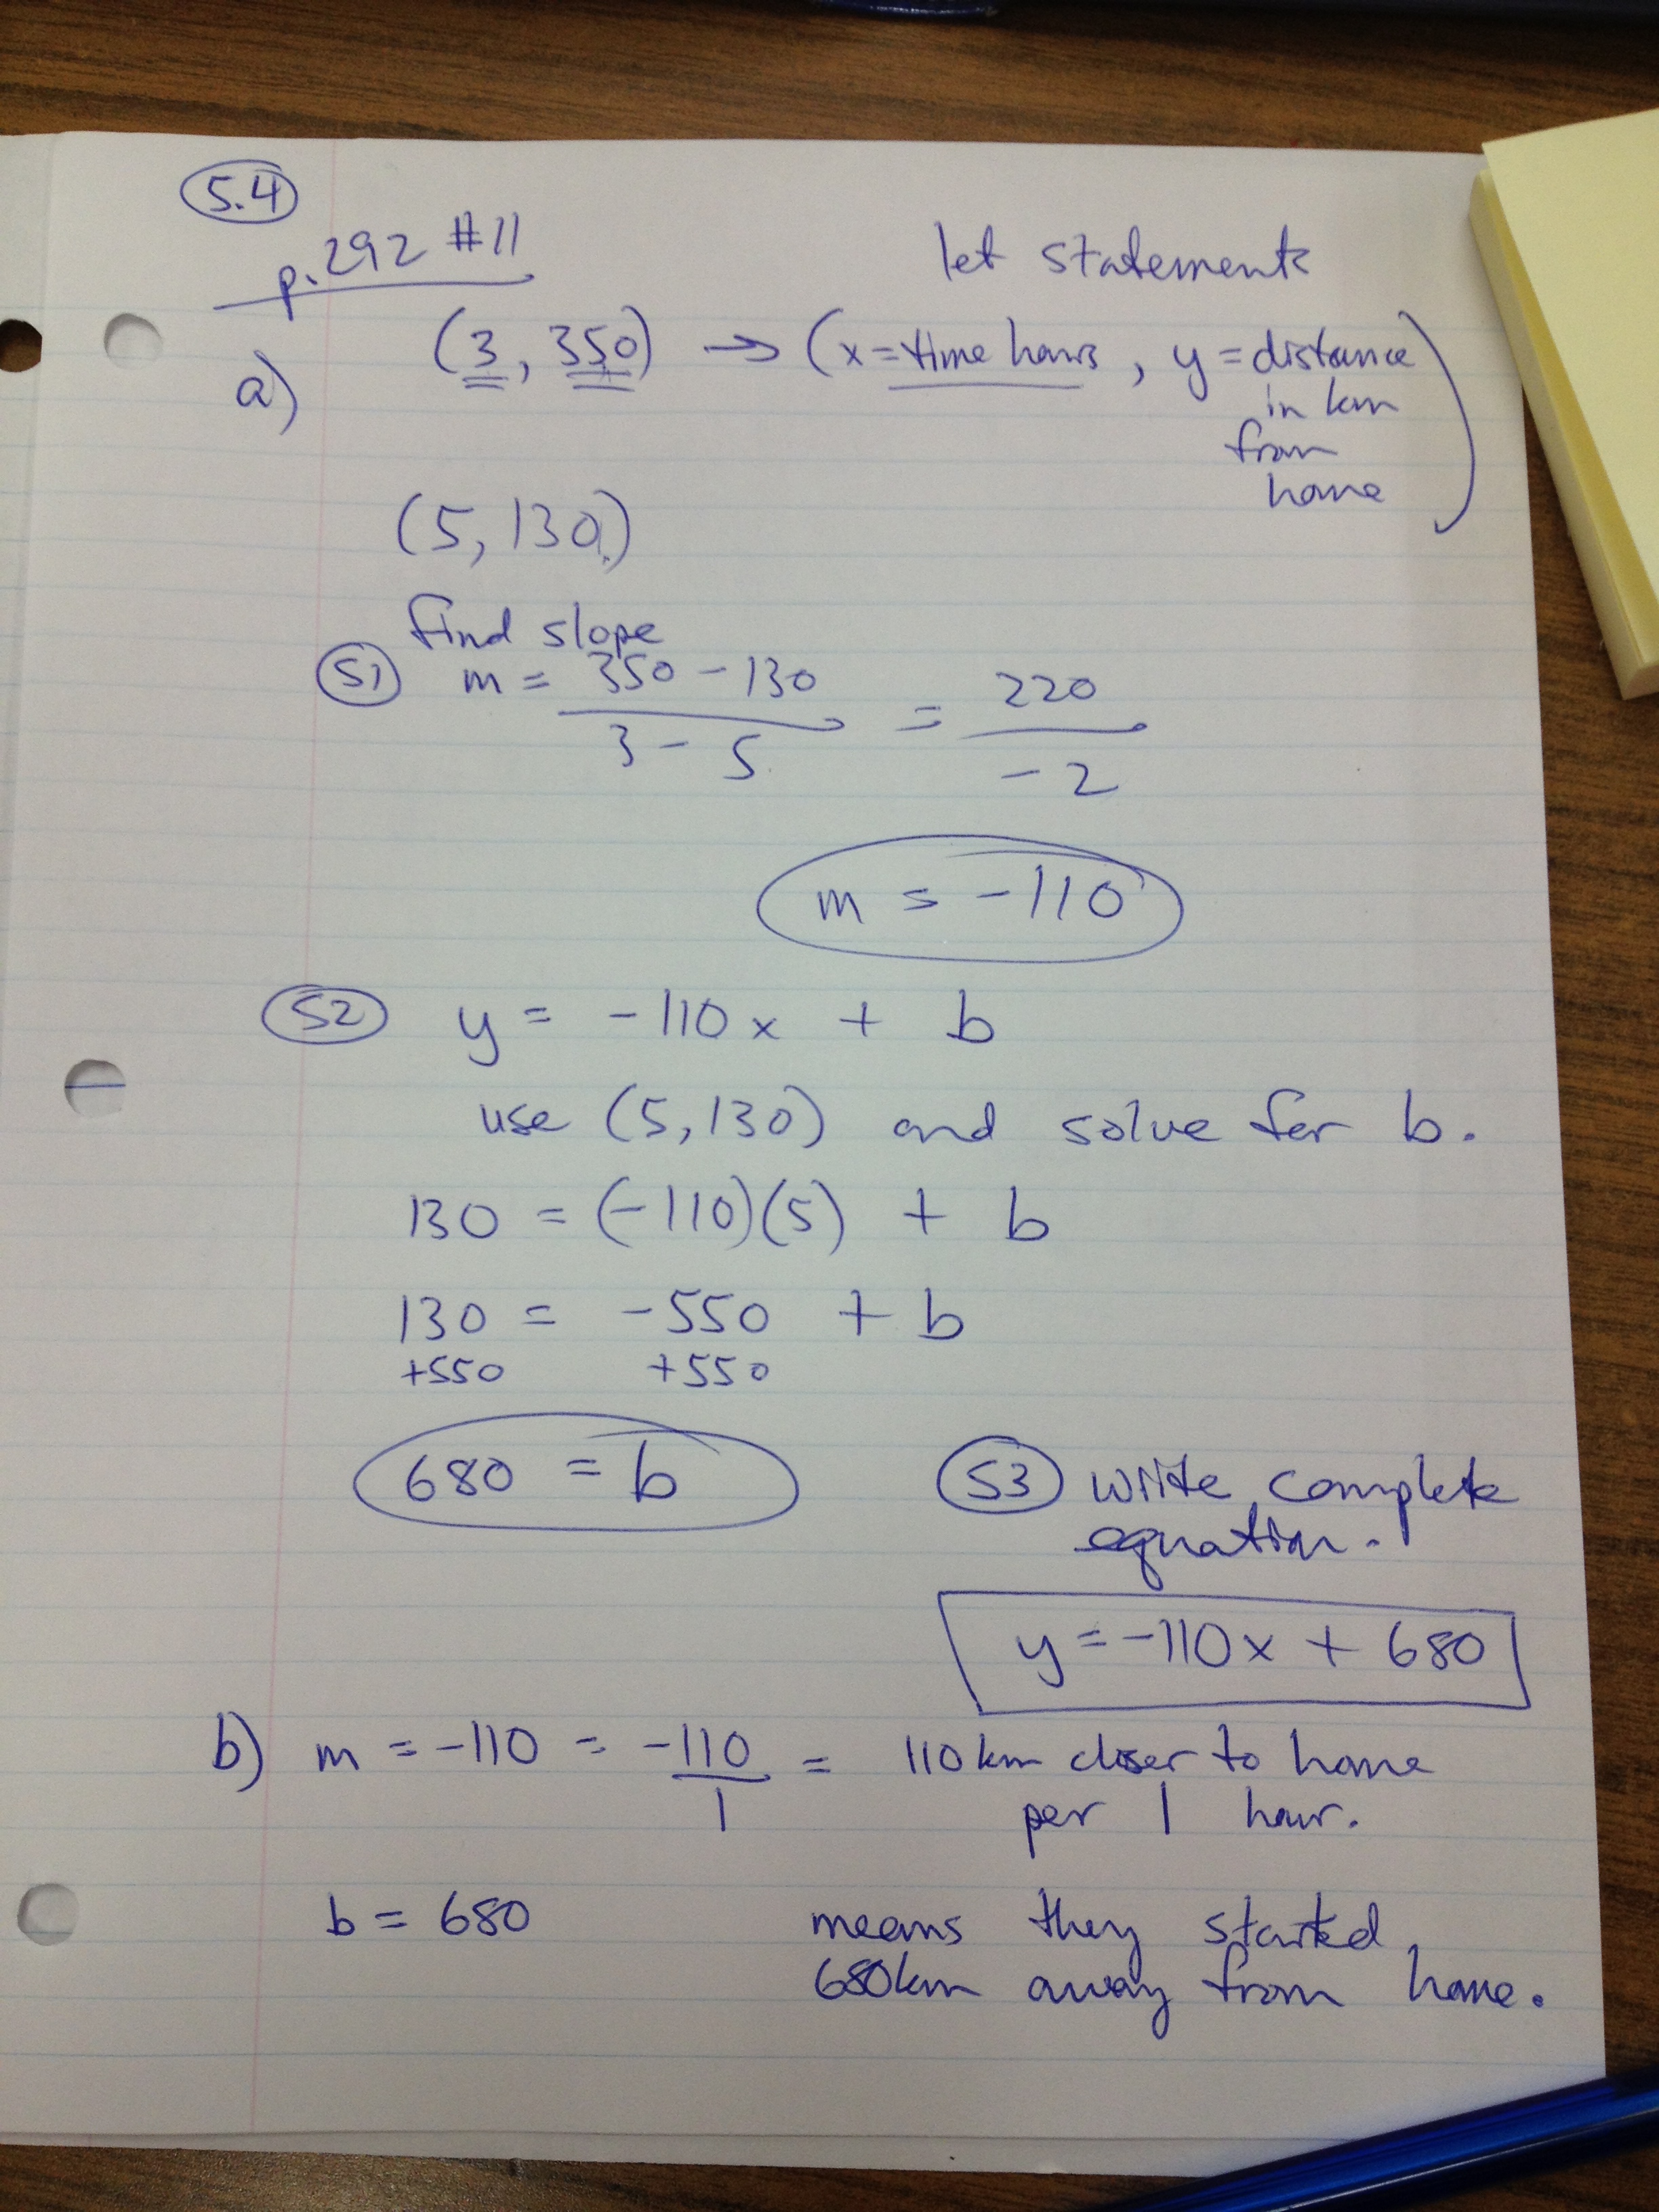 5.4
p.292 #11
let statements
a) (3, 350) → (x = time hours, y = distance
in km
from
home)
(5, 130)
find slope
S1 m = 350 - 130 = 220
3 - 5 -2
m = -110
S2 y = -110x + b
use (5,130) and solve for b.
130 = (-110)(5) + b
130 = -550 + b
+550 +550
680 = b
S3 write complete
equation.
y = -110x + 680
b) m = -110 = -110 = 110km closer to home
1 per 1 hour.
b = 680 means they started
680km away from home.